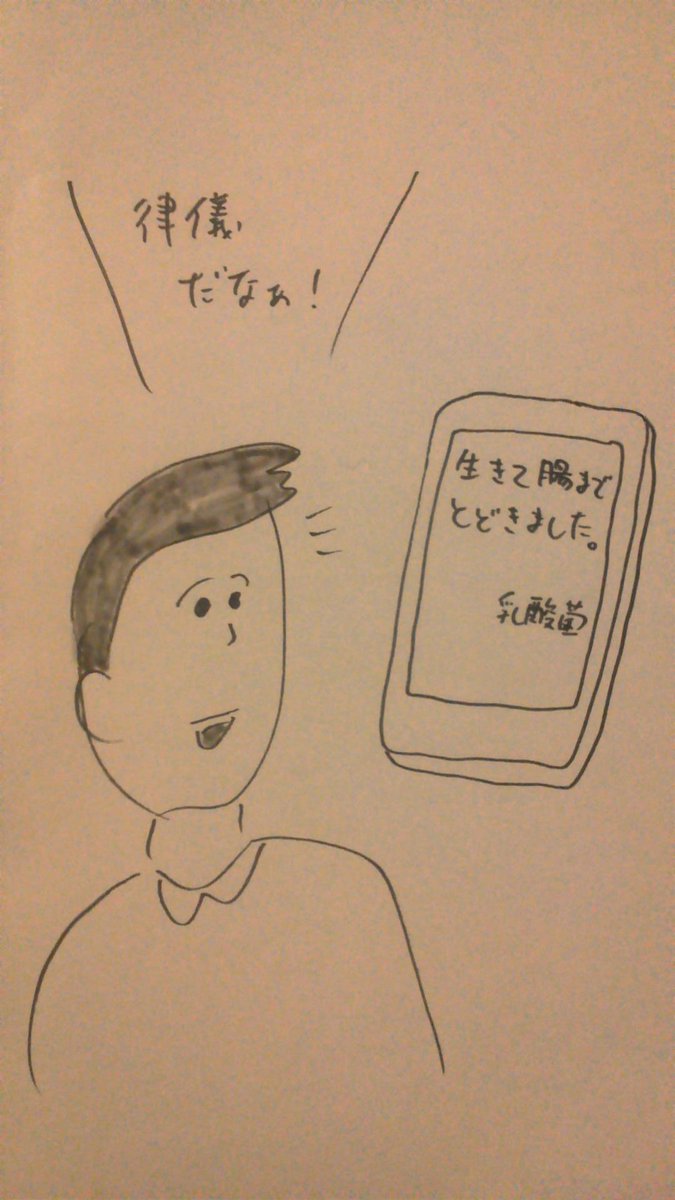 律儀
だなぁ！
生きて腸まで
とどきました。
乳酸菌